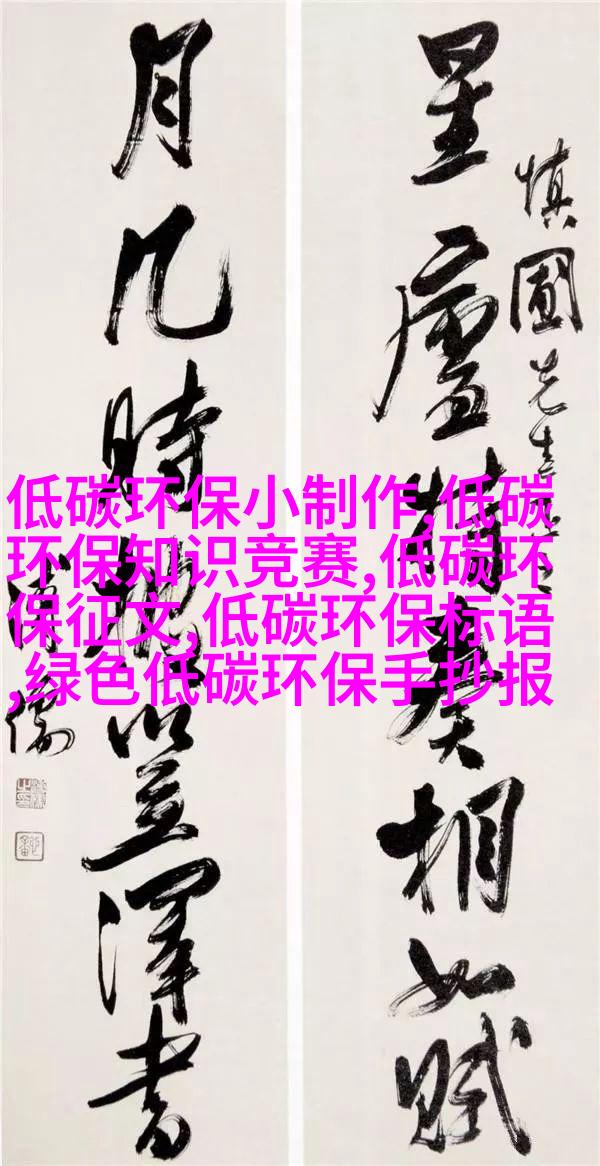 星廬奏相如賦
慎圃先生
月几時笠澤書
溥儒
低碳环保小制作,低碳
环保知识竞赛,低碳环
保征文,低碳环保标语
,绿色低碳环保手抄报